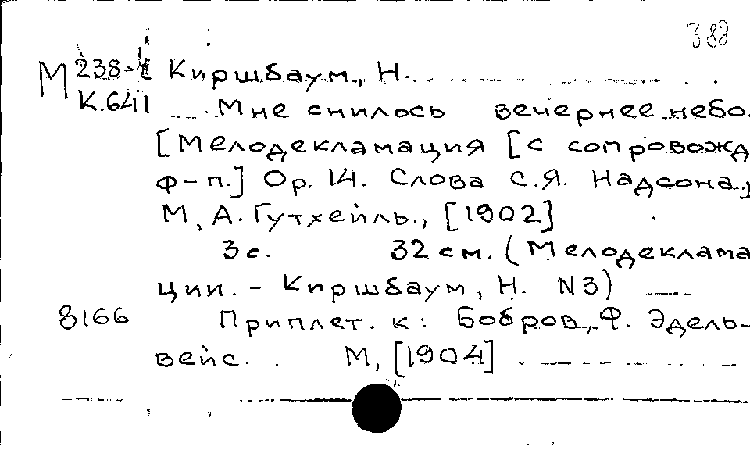 388
М 238-1 Киршбаум, Н.
К.641 Мне снилось вечернее небо.
[Мелодекламация [с сопровожд
ф-п.] Ор. 14. Слова С.Я. Надсона.]
М, А. Гутхейль., [1902]
3с. 32 см. (Мелодеклама
ции. - Киршбаум, Н. N3)
8166 Приплет. к: Бобров, Ф. Эдель-
вейс. М, [1904]